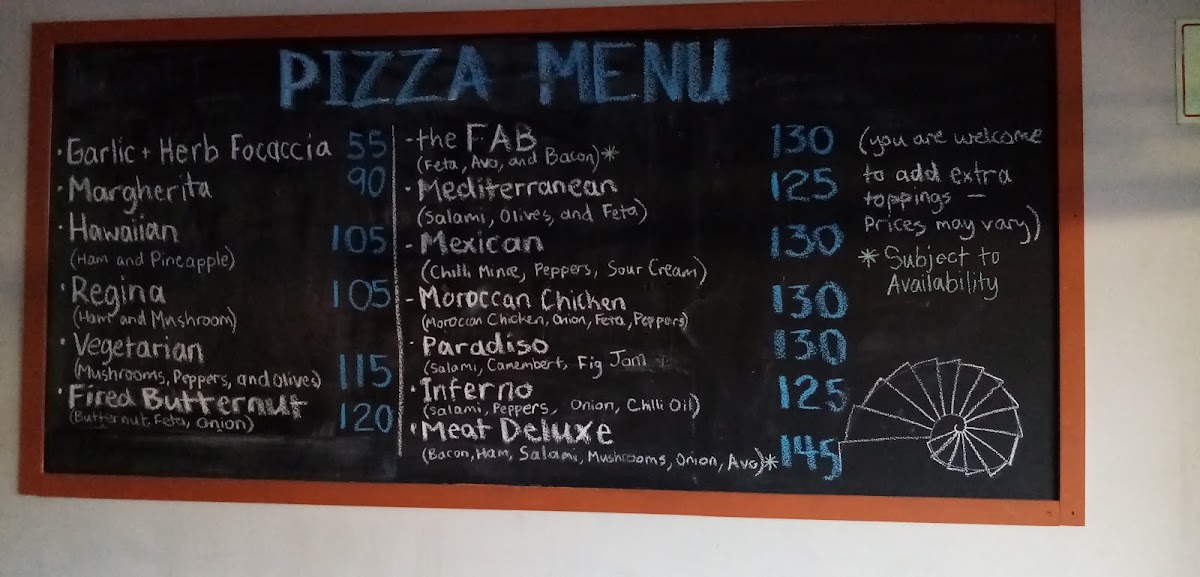 PIZZA MENU
· Garlic + Herb Focaccia 55
· Margherita 90
· Hawaiian 105
(Ham and Pineapple)
· Regina 105
(Ham and Mushroom)
· Vegetarian
(Mushrooms, Peppers, and Olives) 115
· Fired Butternut 120
(Butternut, Feta, Onion)
- the FAB 130
(Feta, Avo, and Bacon)*
· Mediterranean 125
(Salami, Olives, and Feta)
- Mexican 130
(Chilli Mince, Peppers, Sour Cream)
- Moroccan Chicken 130
(Moroccan Chicken, Onion, Feta, Peppers)
· Paradiso 130
(Salami, Camembert, Fig Jam
· Inferno 125
(Salami, Peppers, Onion, Chilli Oil)
· Meat Deluxe 145
(Bacon, Ham, Salami, Mushrooms, Onion, Avo)*
(you are welcome
to add extra
toppings —
Prices may vary)
* Subject to
Availability